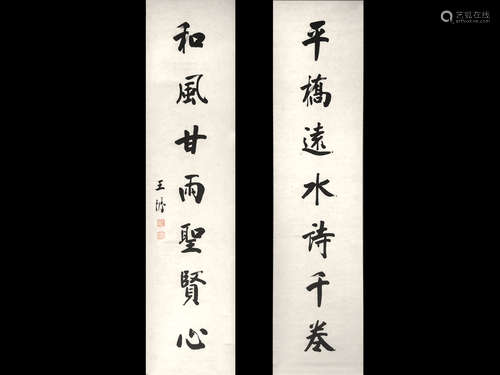 平橋遠水詩千卷
和風甘雨聖賢心